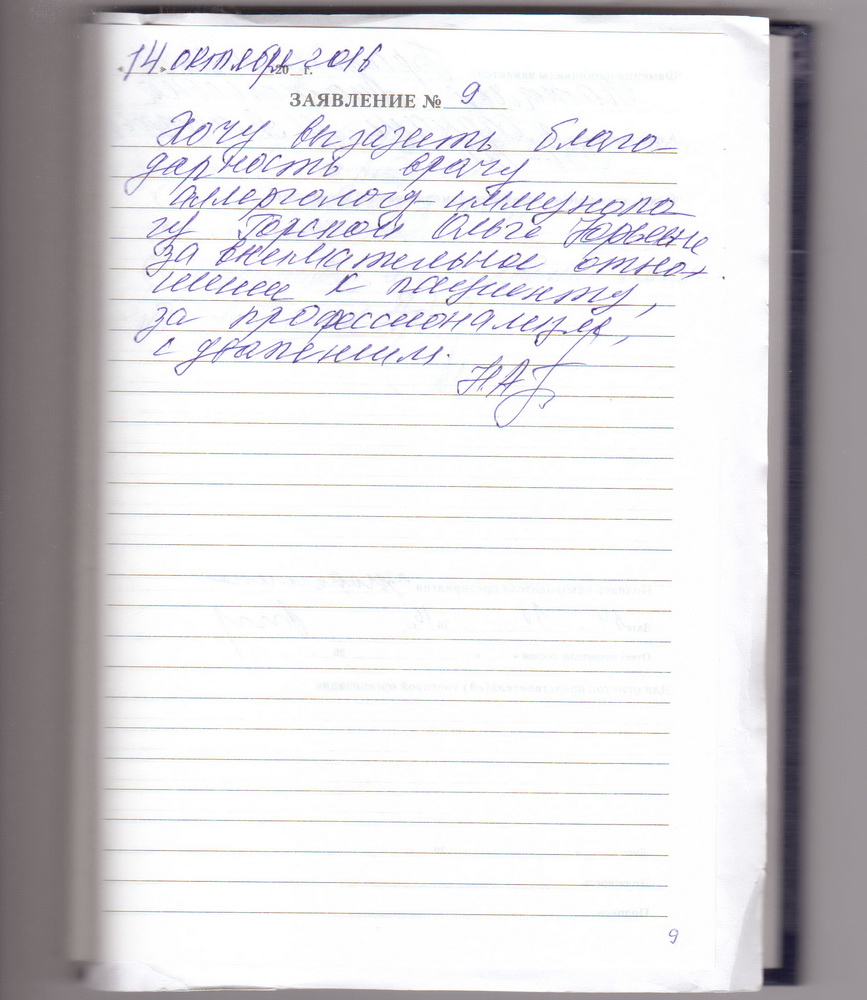 «14» октября 2016 20__г.
ЗАЯВЛЕНИЕ № 9
Хочу выразить благо-
дарность врачу
аллергологу-иммуноло
гу Горской Ольге Юрьевне
за внимательное отно
шение к пациенту,
за профессионализм,
с уважением.
9